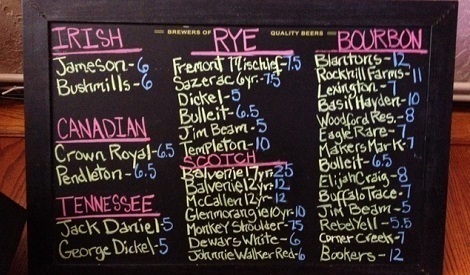 BREWERS OF QUALITY BEERS
IRISH
Jameson-6
Bushmills-6
CANADIAN
Crown Royal-6.5
Pendleton-6.5
TENNESSEE
Jack Daniel-5
George Dickel-5
RYE
Fremont Mischief-7.5
Sazerac 6yr.-7.5
Dickel-5
Bulleit-6.5
Jim Beam-5
Templeton-10
SCOTCH
Balvenie 17yr-25
Balvenie 12yr-12
McCallen 12yr-12
Glenmorangie 10yr-10
Monkey Shoulder-7.5
Dewars White-6
Johnnie Walker Red-6
BOURBON
Blantons-12
Rockhill Farms-11
Lexington-7
Basil Hayden-10
Woodford Res.-8
Eagle Rare-7
Makers Mark-7
Bulleit-6.5
Elijah Craig-8
Buffalo Trace-7
Jim Beam-5
Rebel Yell-5.5
Corner Creek-7
Bookers-12